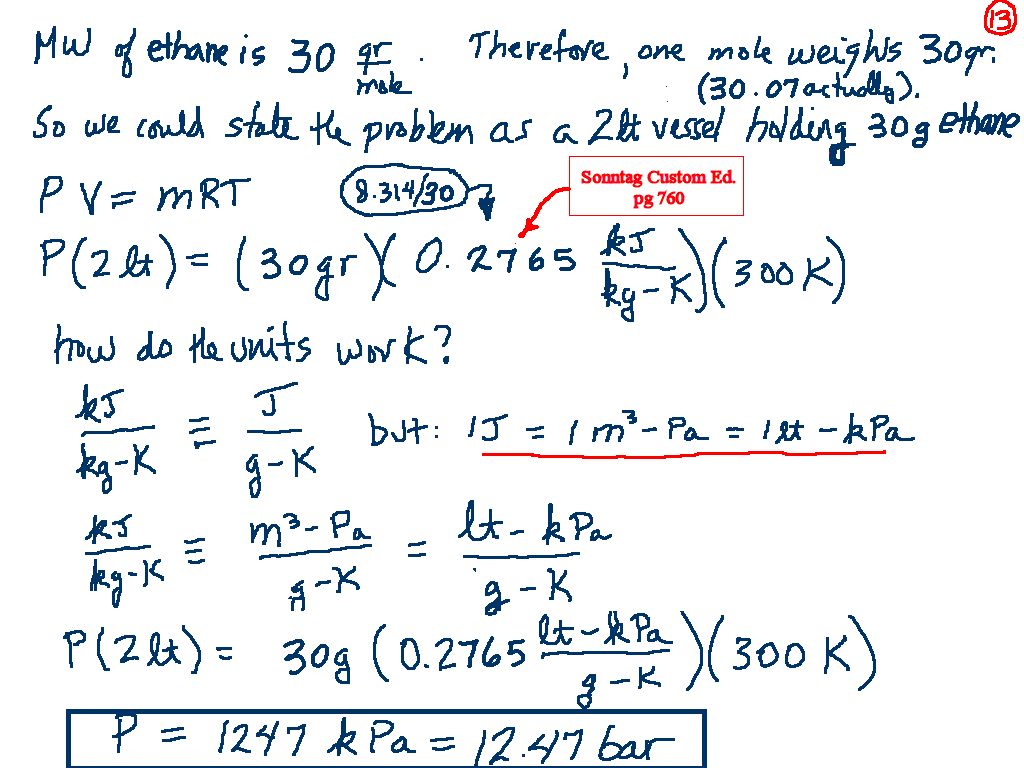 13
MW of ethane is 30 gr/mole. Therefore, one mole weighs 30gr.
(30.07 actually).
So we could state the problem as a 2lt vessel holding 30g ethane
PV = mRT
8.314/30
Sonntag Custom Ed.
pg 760
P(2 lt) = (30gr)(0.2765 kJ/kg-K)(300 K)
how do the units work?
kJ/kg-K ≡ J/g-K but: 1J = 1 m³-Pa = 1 lt-kPa
kJ/kg-K ≡ m³-Pa/g-K = lt-kPa/g-K
P(2 lt) = 30g (0.2765 lt-kPa/g-K)(300 K)
P = 1247 kPa = 12.47 bar